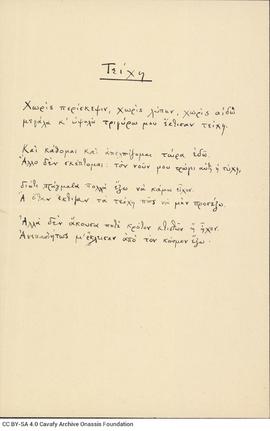 Τείχη
Χωρίς περίσκεψιν, χωρίς λύπην, χωρίς αιδώ
μεγάλα κ' υψηλά τριγύρω μου έκτισαν τείχη.
Και κάθομαι και απελπίζομαι τώρα εδώ.
Άλλο δεν σκέπτομαι: τον νουν μου τρώγει αυτή η τύχη·
διότι πράγματα πολλά έξω να κάμω είχον.
Α όταν έκτιζαν τα τείχη πώς να μην προσέξω.
Αλλά δεν άκουσα ποτέ κρότον κτιστών ή ήχον.
Ανεπαισθήτως μ' έκλεισαν από τον κόσμον έξω.
CC BY-SA 4.0 Cavafy Archive Onassis Foundation